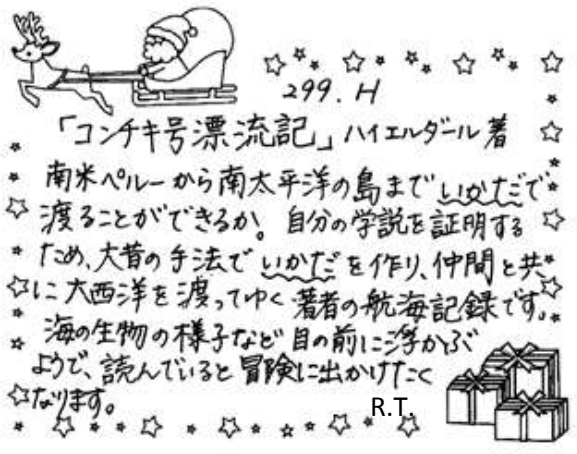 299.H
「コンチキ号漂流記」ハイエルダール著
南米ペルーから南太平洋の島までいかだで
渡ることができるか。自分の学説を証明する
ため、大昔の手法でいかだを作り、仲間と共
に大西洋を渡ってゆく著者の航海記録です。
海の生物の様子など目の前に浮かぶ
ようで、読んでいると冒険に出かけたく
なります。
R.T.